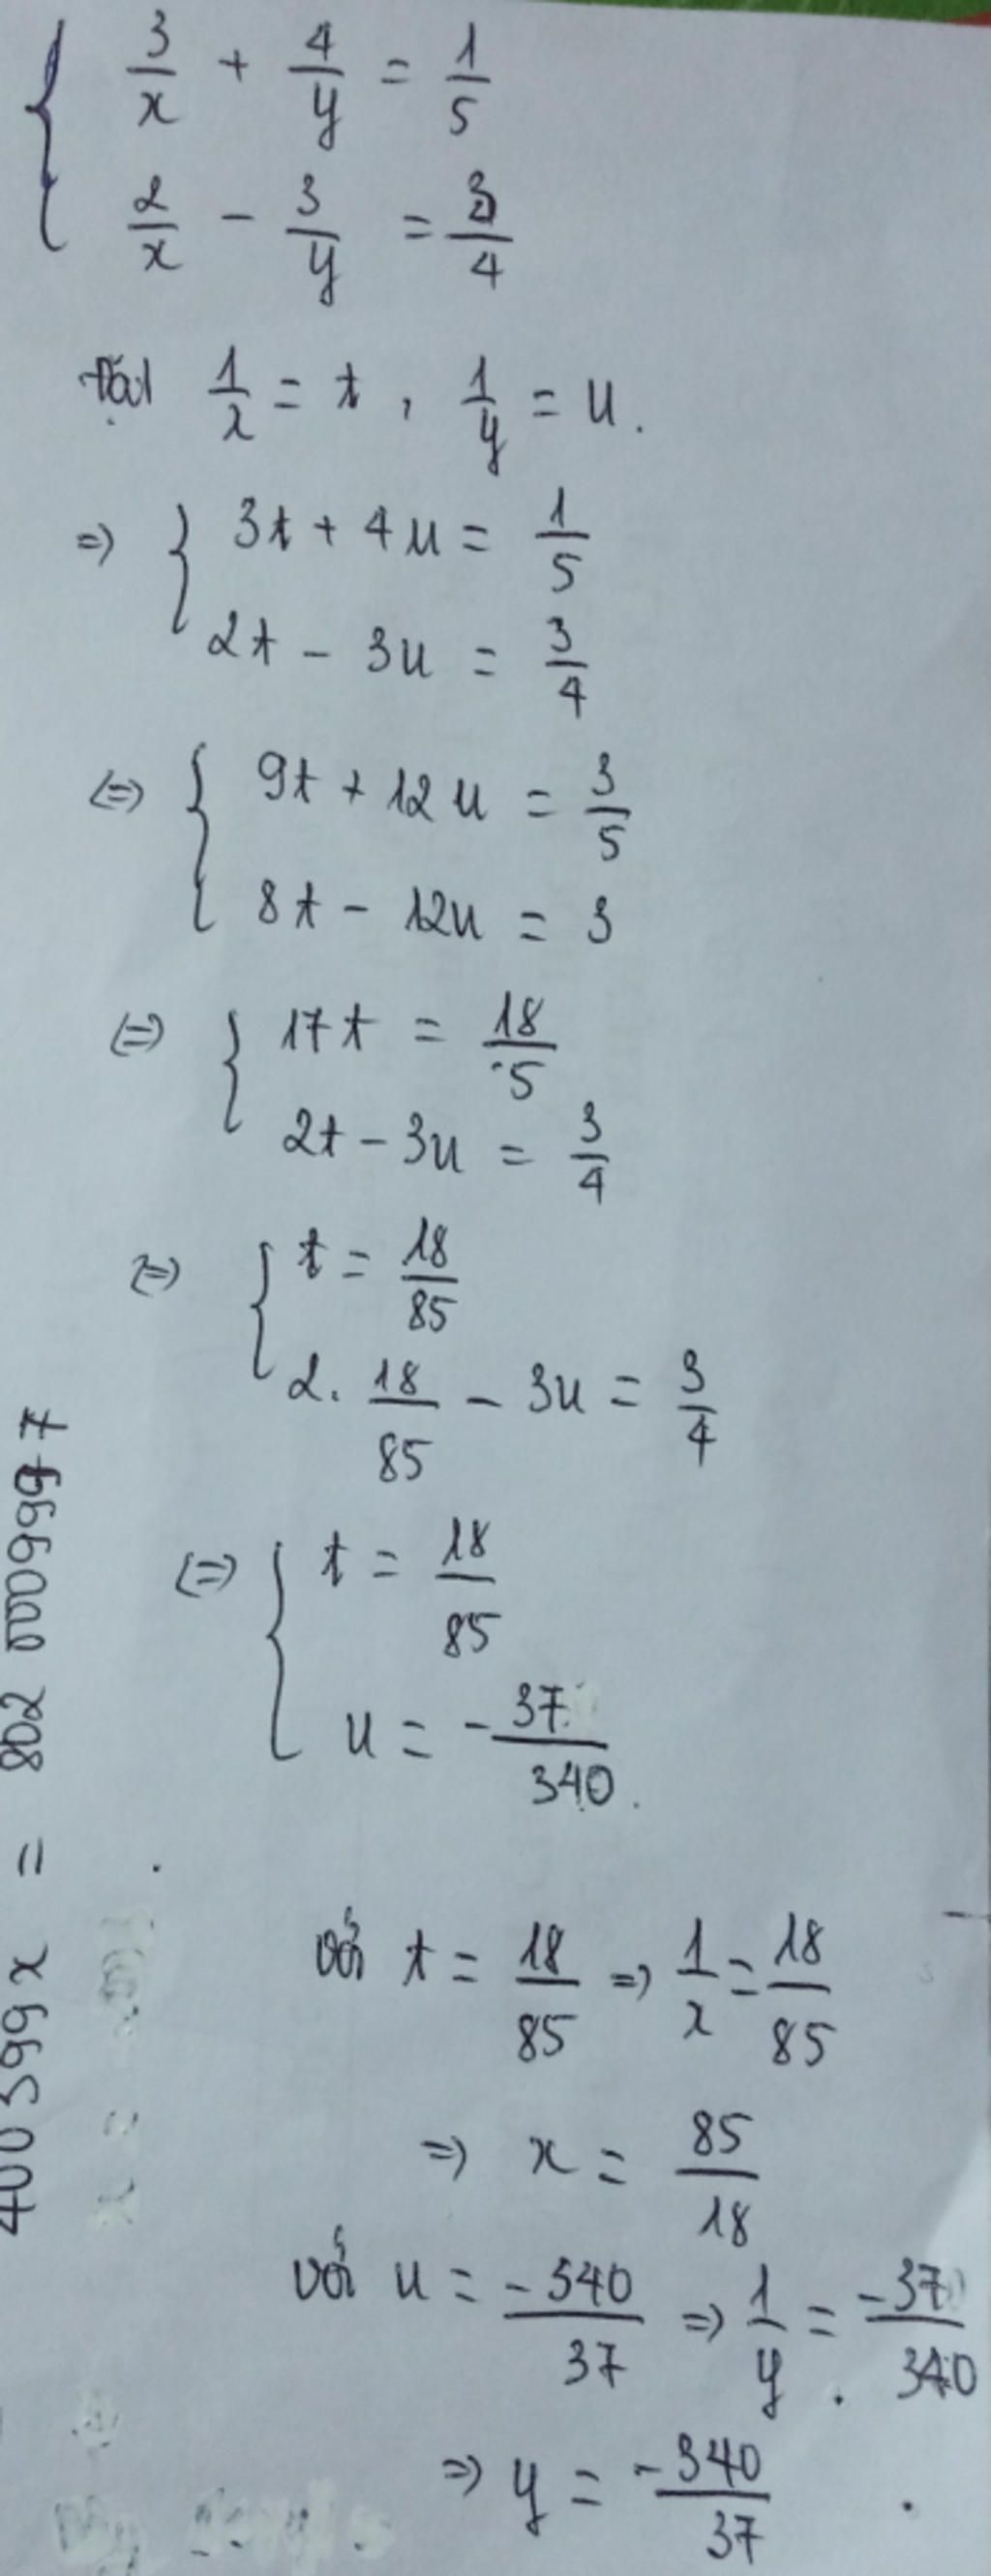 { 3/x + 4/y = 1/5
2/x - 3/y = 3/4
Đặt 1/x = t, 1/y = u.
=> { 3t + 4u = 1/5
2t - 3u = 3/4
<=> { 9t + 12u = 3/5
8t - 12u = 3
<=> { 17t = 18/5
2t - 3u = 3/4
<=> { t = 18/85
2. 18/85 - 3u = 3/4
<=> { t = 18/85
u = -37/340.
với t = 18/85 => 1/x = 18/85
=> x = 85/18
với u = -340/37 => 1/y = -37/340
=> y = -340/37
400399x = 802